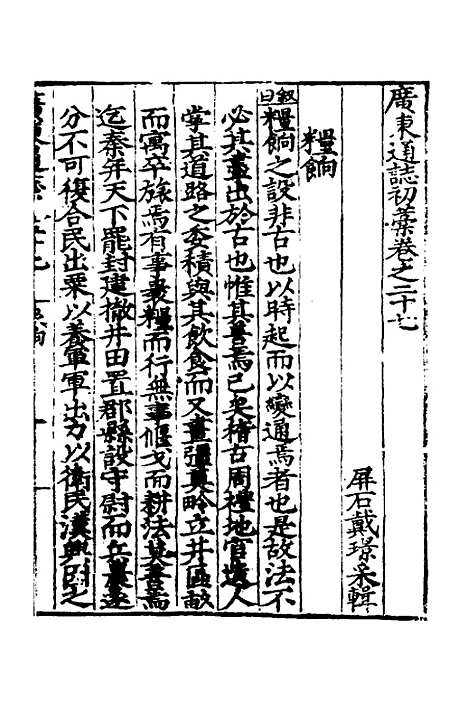 廣東通誌初藁卷之二十七
屏石戴璟采輯
糧餉
叙曰糧餉之設非古也以時起而以變通焉者也是故法不
必其盡出於古也惟其善焉已矣稽古周禮地官遺人
掌其道路之委積與其飲食而又畫疆異畛立井區畝
而寓卒旅焉有事裹糧而行無事偃戈而耕法莫善焉
迄秦并天下罷封建撤井田置郡縣設守尉而兵農遂
分不可復合民出粟以養軍軍出力以衛民漢興因之